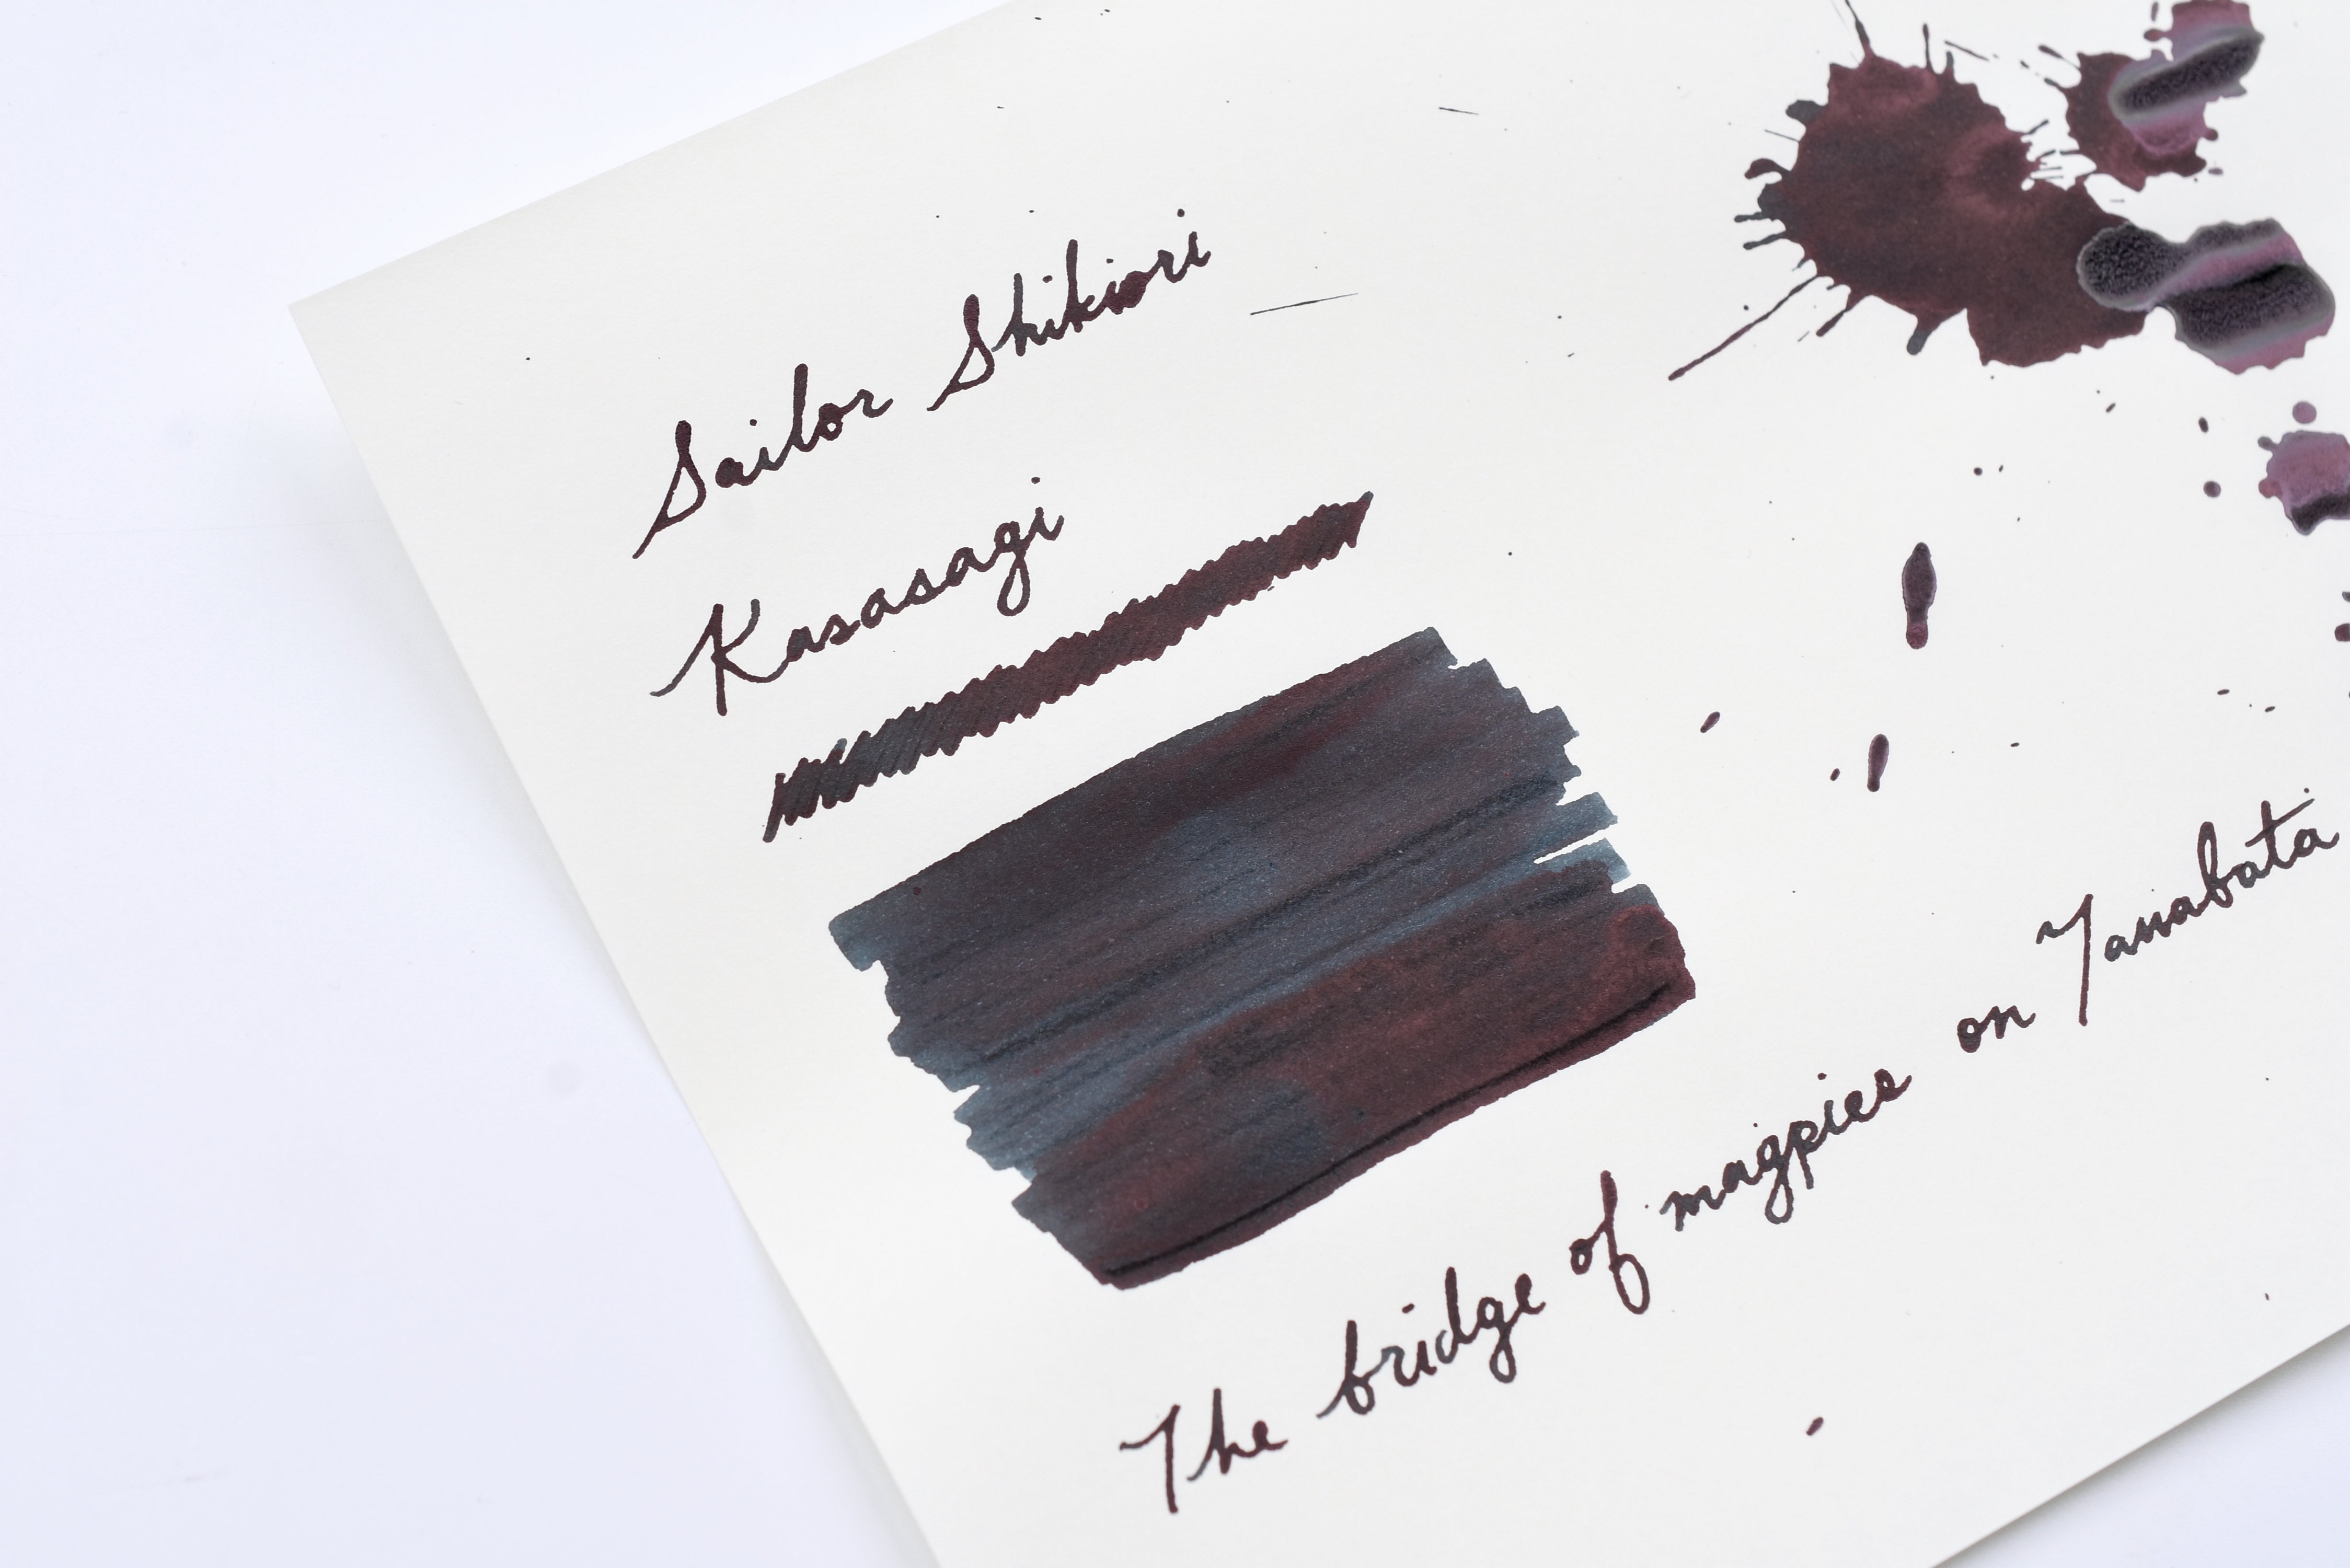 Sailor Shikiori
Kasasagi
The bridge of magpies on Tanabata